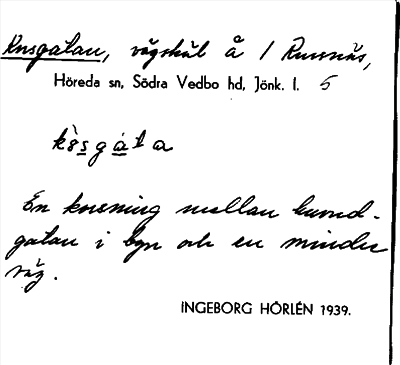 Kusgatan, vägskäl å / Rusnäs,
Höreda sn, Södra Vedbo hd, Jönk. l. 5
En korsning mellan huvud-
gatan i byn och en mindre
väg.
INGEBORG HÖRLÉN 1939.